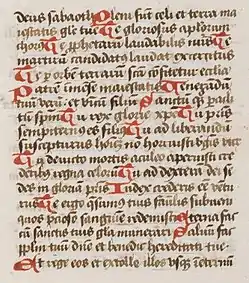 deus sabaoth Pleni sut celi et terra ma
iestatis glie tue Te gloriosus aplorum
chorus Te pphetarum laudabilis nus Te
martirum candidatus laudat exercitus
Te p orbe terrarum scta cofitetur ecclia
Patre imense maiestatis Venerandu
tuum verum et unicum filium Sanctum q paracli
tum spm Tu rex glorie xpe Tu pris
sempiternus es filius Tu ad liberandu
suscepturus hoiem no horruisti vgis ute
Tu devicto mortis aculeo aperuisti cre
dentibus regna celorum Tu ad dexteram dei se
des in gloria pris Iudex crederis ee ventu
rus Te ergo qsumus tuis famulis subveni
quos pcioso sanguine redemisti Eterna fac
cu sanctis tuis glia munerari Salvum fac
pplm tuum dne et benedic hereditati tue
Et rege eos et extolle illos usqz in eternum